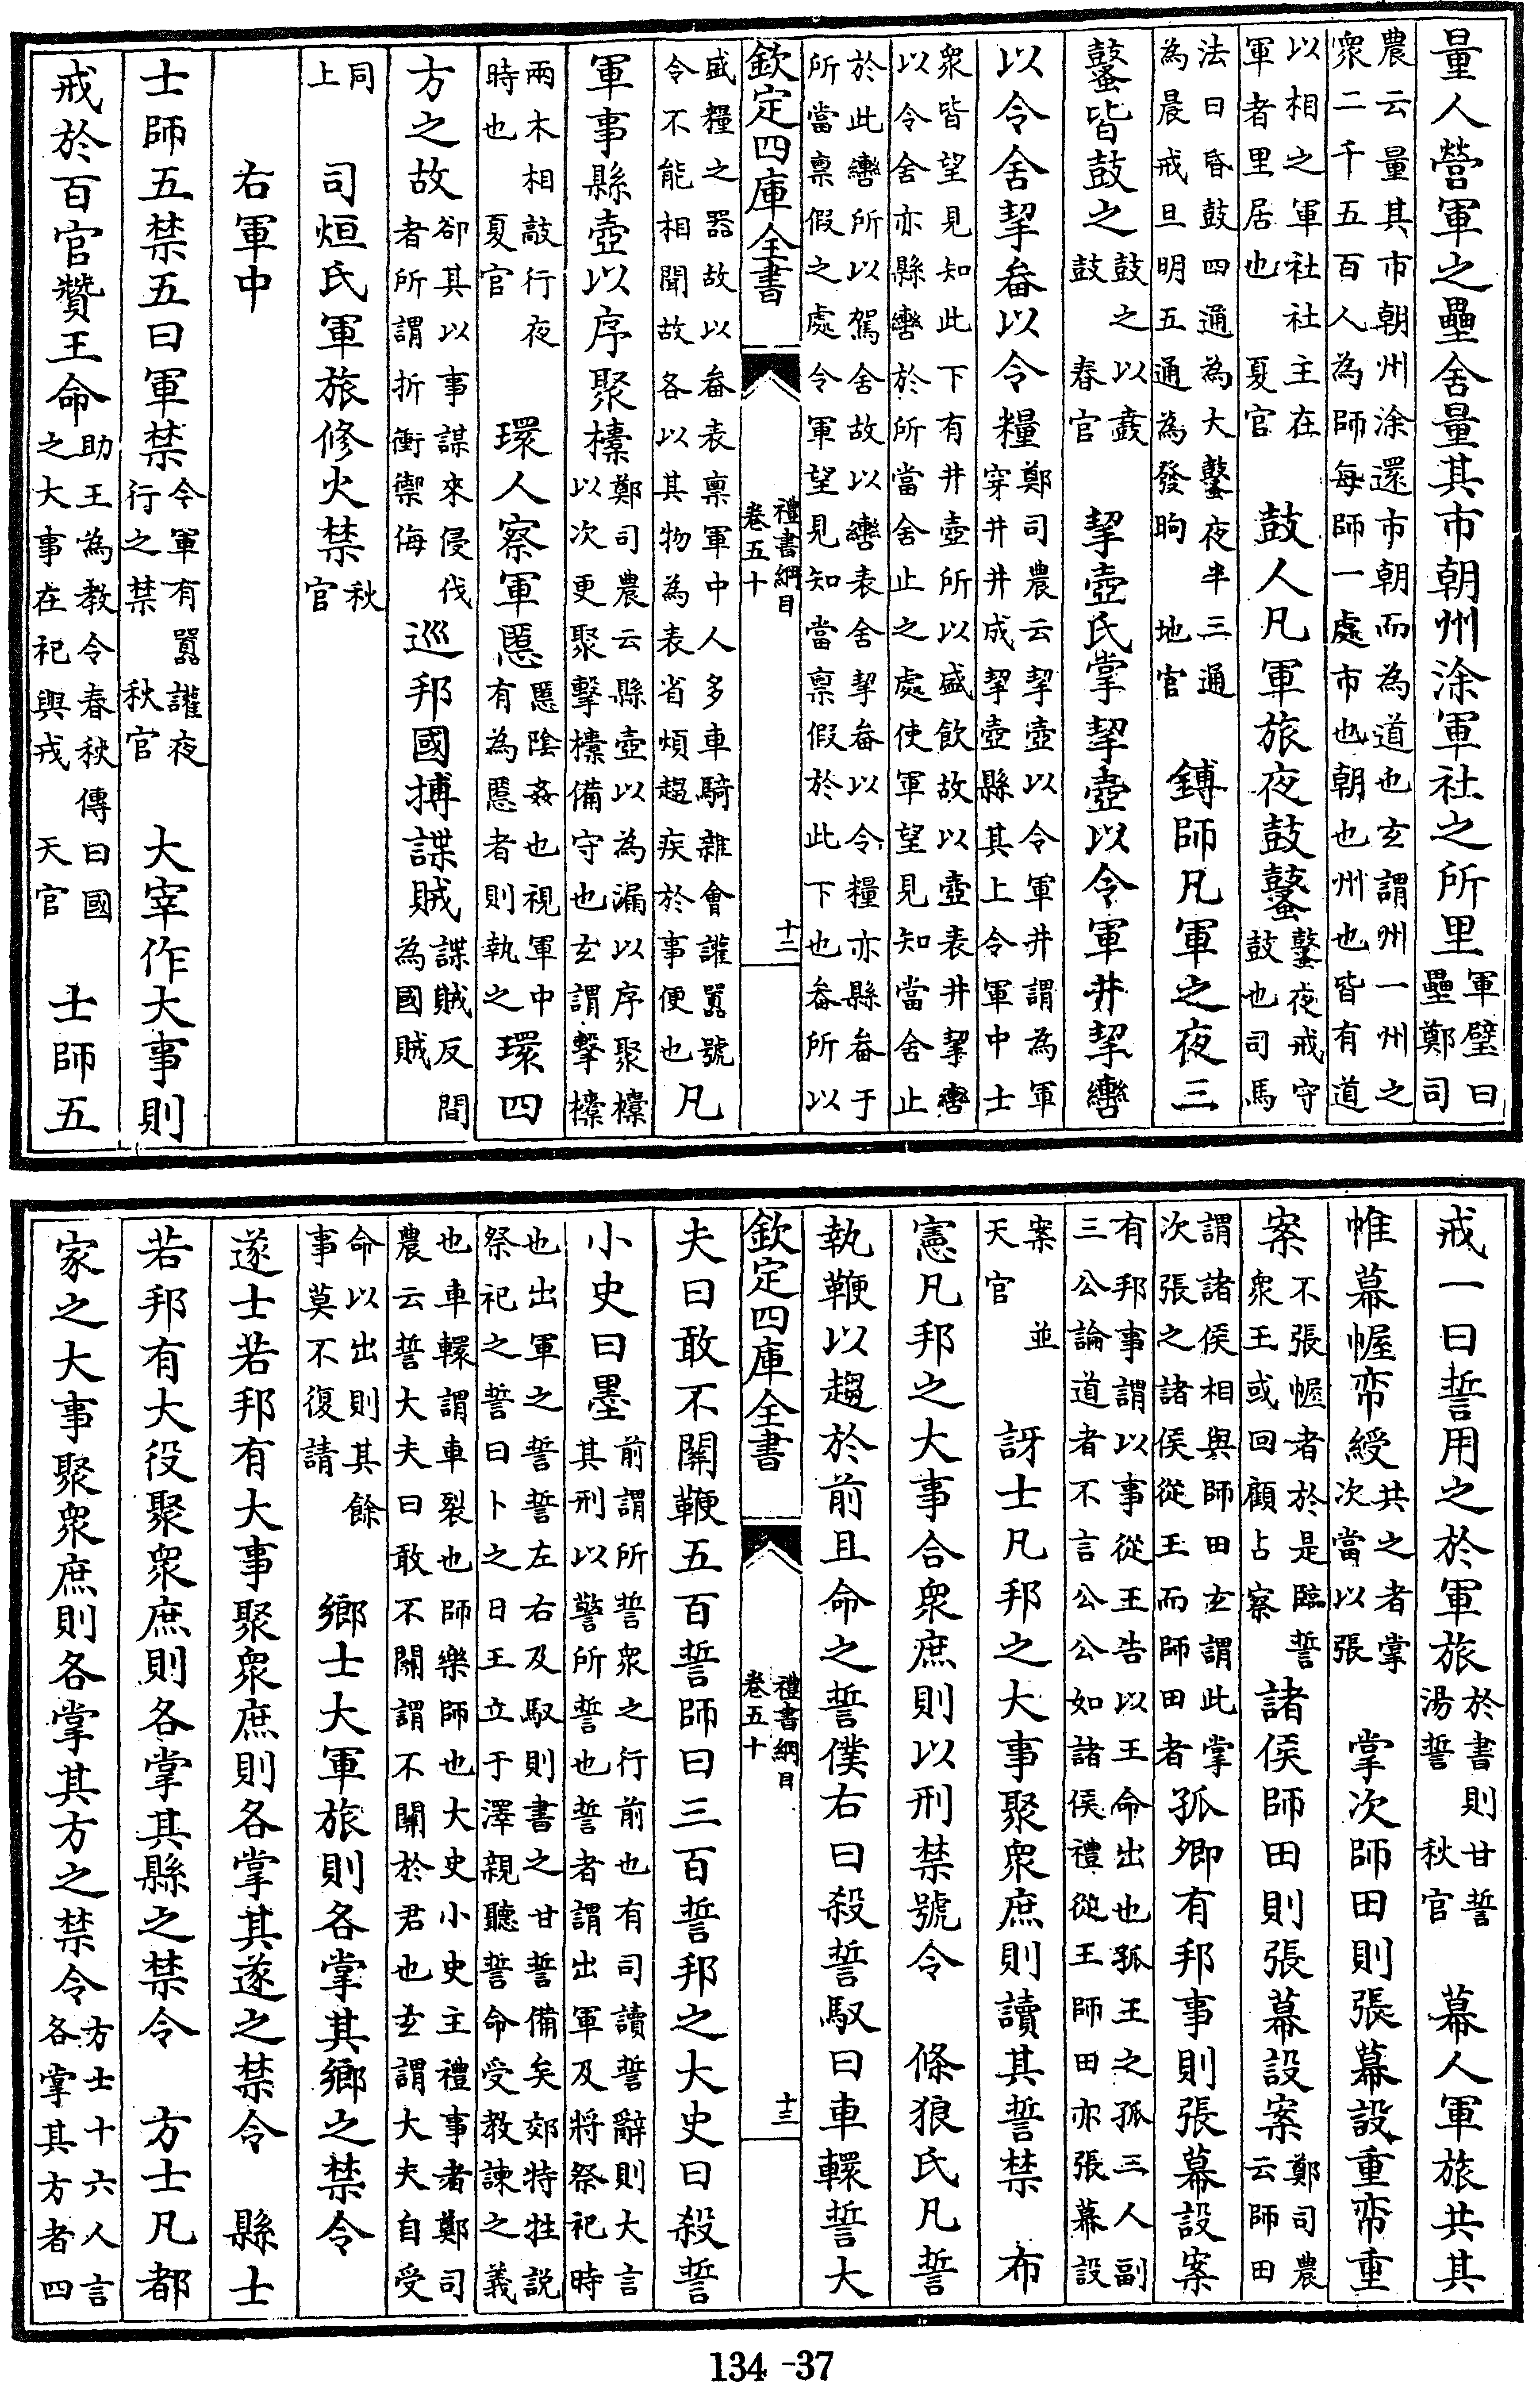 量人營軍之壘舍量其市朝州涂軍社之所里軍壁曰壘鄭司
農云量其市朝州涂還市朝而為道也玄謂州一州之衆二千五百人為師每師一處市也朝也州也皆有道
以相之軍社社主在軍者里居也 夏官 鼓人凡軍旅夜鼓鼜鼜夜戒守鼓也司馬
法曰昏鼓四通為大鼜夜半三通為晨戒旦明五通為發昫 地官 鎛師凡軍之夜三
鼜皆鼓之鼓之以鼖鼓 春官 挈壺氏掌挈壺以令軍井挈轡
以令舍挈畚以令糧鄭司農云挈壺以令軍井謂為軍穿井井成挈壺縣其上令軍中士
衆皆望見知此下有井壺所以盛飲故以壺表井挈轡以令舍亦縣轡於所當舍止之處使軍望見知當舍止
於此轡所以駕舍故以轡表舍挈畚以令糧亦縣畚于所當稟假之處令軍望見知當稟假於此下也畚所以
欽定四庫全書 禮書綱目 卷五十 十二
盛糧之器故以畚表稟軍中人多車騎雜會讙嚻號令不能相聞故各以其物為表省煩趨疾於事便也凡
軍事縣壺以序聚㯿鄭司農云縣壺以為漏以序聚㯿以次更聚擊㯿備守也玄謂擊㯿
兩木相敲行夜時也 夏官 環人察軍慝慝陰姦也視軍中有為慝者則執之環四
方之故卻其以事謀來侵伐者所謂折衝禦侮巡邦國搏諜賊諜賊反間為國賊
同上 司烜氏軍旅修火禁秋官
右軍中
士師五禁五曰軍禁令軍有嚻讙夜行之禁 秋官 大宰作大事則
戒於百官贊王命助王為教令春秋傳曰國之大事在祀與戎 天官 士師五
戒一曰誓用之於軍旅於書則甘誓湯誓 秋官 幕人軍旅共其
帷幕幄帟綬共之者掌次當以張 掌次師田則張幕設重帟重
案不張幄者於是臨誓衆王或回顧占察諸侯師田則張幕設案鄭司農云師田
謂諸侯相與師田玄謂此掌次張之諸侯從王而師田者孤卿有邦事則張幕設案
有邦事謂以事從王告以王命出也孤王之孤三人副三公論道者不言公公如諸侯禮從王師田亦張幕設
案 並天官 訝士凡邦之大事聚衆庶則讀其誓禁 布
憲凡邦之大事合衆庶則以刑禁號令 條狼氏凡誓
執鞭以趨於前且命之誓僕右曰殺誓馭曰車轘誓大
欽定四庫全書 禮書綱目 卷五十 十三
夫曰敢不關鞭五百誓師曰三百誓邦之大史曰殺誓
小史曰墨前謂所誓衆之行前也有司讀誓辭則大言其刑以警所誓也誓者謂出軍及將祭祀時
也出軍之誓誓左右及馭則書之甘誓備矣郊特牲説祭祀之誓曰卜之日王立于澤親聽誓命受教諫之義
也車轘謂車裂也師樂師也大史小史主禮事者鄭司農云誓大夫曰敢不關謂不關於君也玄謂大夫自受
命以出則其餘事莫不復請 鄉士大軍旅則各掌其鄉之禁令
遂士若邦有大事聚衆庶則各掌其遂之禁令 縣士
若邦有大役聚衆庶則各掌其縣之禁令 方士凡都
家之大事聚衆庶則各掌其方之禁令方士十六人言各掌其方者四
134-37